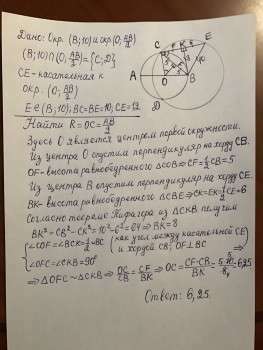 Дано: Окр. (B; 10) и окр. (O, AB/2)
(B; 10) ∩ (O, AB/2) = {C; D}
CE - касательная к
окр. (O, AB/2)
E ∈ (B; 10); BC = BE = 10; CE = 12
Найти R = OC = AB/2
Здесь O является центром первой окружности.
Из центра O опустим перпендикуляр на хорду CB.
OF - высота равнобедренного ΔCOB ⇒ CF = 1/2 CB = 5
Из центра B опустим перпендикуляр на хорду CE.
BK - высота равнобедренного ΔCBE ⇒ CK = EK = 1/2 CE = 6
Согласно теореме Пифагора из ΔCKB получим
BK² = CB² - CK² = 10² - 6² = 64 ⇒ BK = 8
∠COF = ∠BCK = 1/2 BC (как угол между касательной CE
и хордой CB; OF ⊥ BC) ⇒
∠OFC = ∠CKB = 90°
⇒ ΔOFC ~ ΔCKB ⇒ OC/CB = CF/BK ⇒ OC = CF · CB/BK = 5 · 10/8 = 6,25
Ответ: 6,25.
C
F
K
E
A
O
B
D